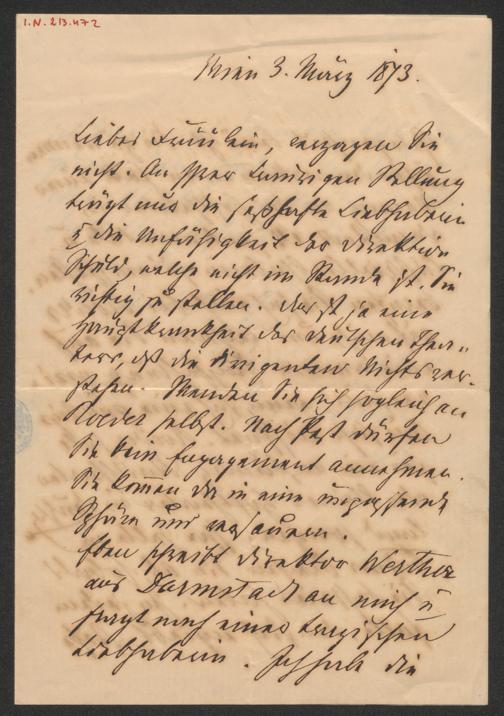 I.N. 213.472
Wien 3. März 1873.
Liebes Fräulein, verzagen Sie
nicht. An Ihrer traurigen Stellung
trägt nur die seßhafte Liebhaberin
& die Unfähigkeit der Direktion
Schuld, welche nicht im Stande ist, Sie
richtig zu stellen. Das ist ja eine
Hauptkrankheit des deutschen Thea-
ters, daß die Dirigenten Nichts ver-
stehen. Wenden Sie sich sogleich an
Roeder selbst. Nach Pest dürfen
Sie kein Engagement annehmen.
Sie kommen da in eine unpassende
Sphäre und versauern.
Eben schreibt Direktor Werther
aus Darmstadt an mich u
fragt nach einer tragischen
Liebhaberin. Ich habe die